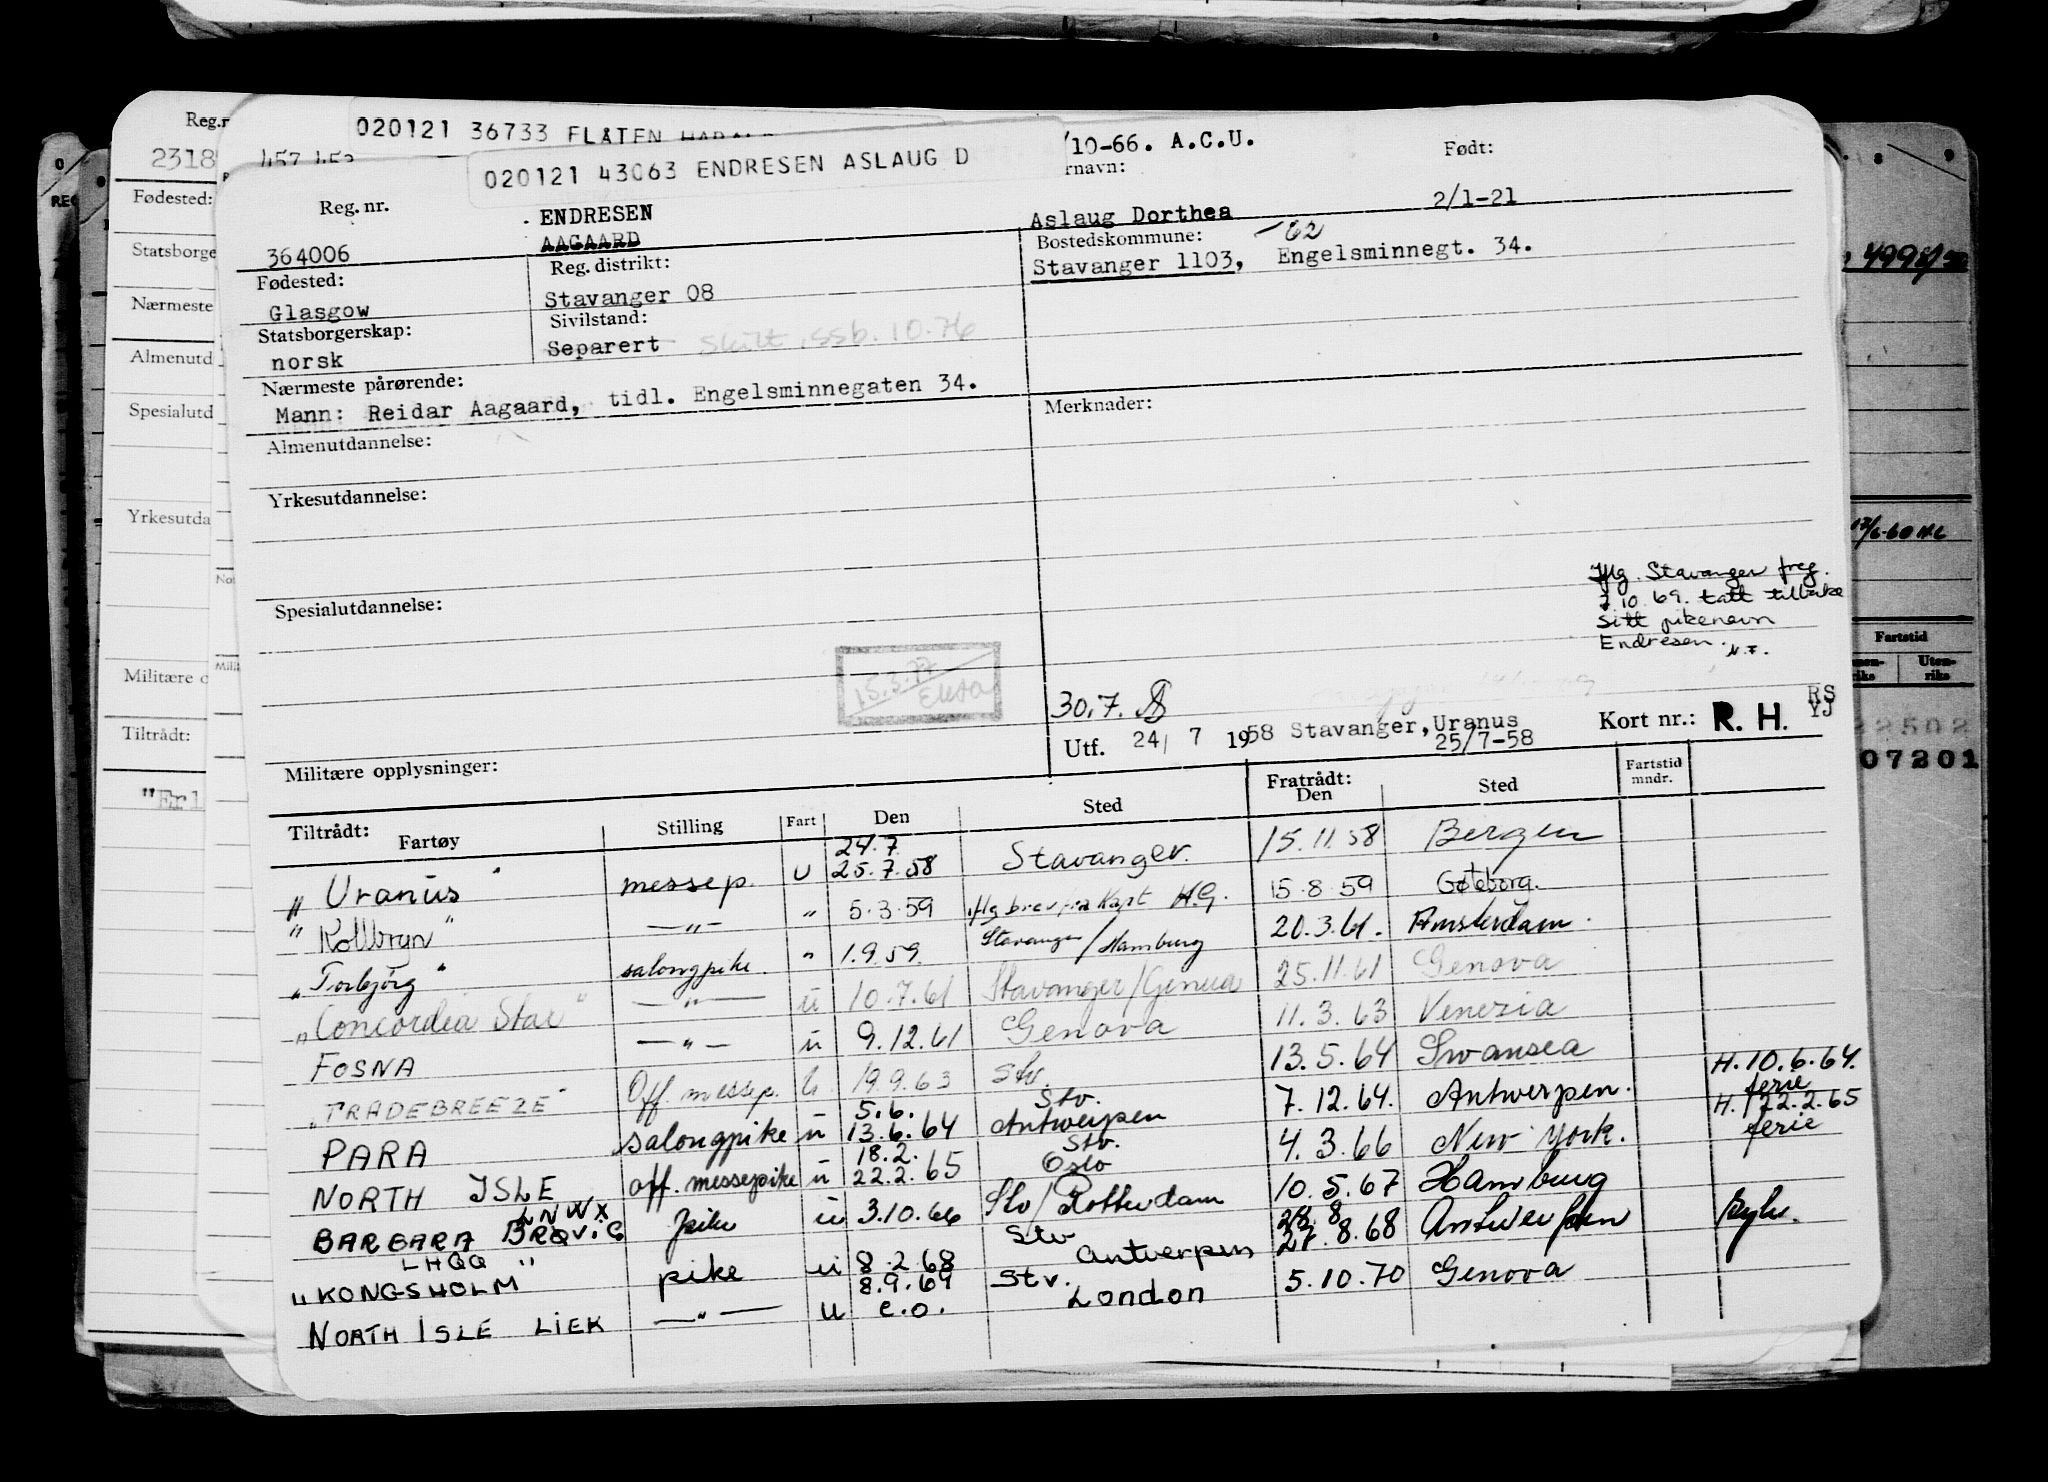 020121 36733 FLATEN HARALD
020121 43063 ENDRESEN ASLAUG D
/10-66. A.C.U.
Reg.nr. ENDRESEN rnavn: Aslaug Dorthea Født: 2/1-21
364006 AAGAARD
Fødested: Glasgow
Reg. distrikt: Stavanger 08
Bostedskommune: -62
Stavanger 1103, Engelsminnegt. 34.
Statsborgerskap: norsk
Sivilstand: Separert skilt, ssb. 10.76
Nærmeste pårørende:
Mann: Reidar Aagaard, tidl. Engelsminnegaten 34.
Almenutdannelse:
Merknader:
Yrkesutdannelse:
Spesialutdannelse:
Iflg. Stavanger freg.
2.10.69. tatt tilbake
sitt pikenavn
Endresen. N.F.
15.3.77
30.7.
Utf. 24/ 7 1958 Stavanger, Uranus 25/7-58
Kort nr.: R. H. RS YJ
Militære opplysninger:
Tiltrådt: Fratrådt:
Fartøy Stilling Fart Den Sted Den Sted Fartstid mndr.
"Uranus" messep. U 24.7 25.7.58 Stavanger. 15.11.58 Bergen
"Kollbryn" —"— " 5.3.59 iflg brev fra Kapt H.G. 15.8.59 Gøteborg.
"Torbjørg" salongpike. " 1.9.59. Stavanger/Hamburg 20.3.61. Amsterdam.
"Concordia Star" —"— u 10.7.61 Stavanger/Genua 25.11.61 Genova
FOSNA —"— u 9.12.61 Genova 11.3.63 Venezia
"TRADEBREEZE" Off. messep. U 19.9.63 Stv. 13.5.64 Swansea
PARA salongpike u 5.6. 13.6.64 Stv. Antwerpen 7.12.64. Antwerpen. H. 10.6.64. ferie
NORTH ISLE off. messepike u 18.2. 22.2.65 Stv. Oslo 4.3.66 New York. H. 22.2.65 ferie
BARBARA BRØVIG LNWX pike u 3.10.66 Stv/Rotterdam 10.5.67 Hamburg
"KONGSHOLM" LHQQ pike u 8.2.68 Stv Antwerpen 28.8 27.8.68 Antwerpen
NORTH ISLE LIEK —"— U 8.9.69 e.o. Stv. London 5.10.70 Genova
Reg.n
2318
457 453
Fødested:
Statsborge
Nærmeste
Almenutd
Spesialutd
Yrkesutda
Militære o
Tiltrådt:
"Erl
Fartstid
Uten-
riks
22502
07201